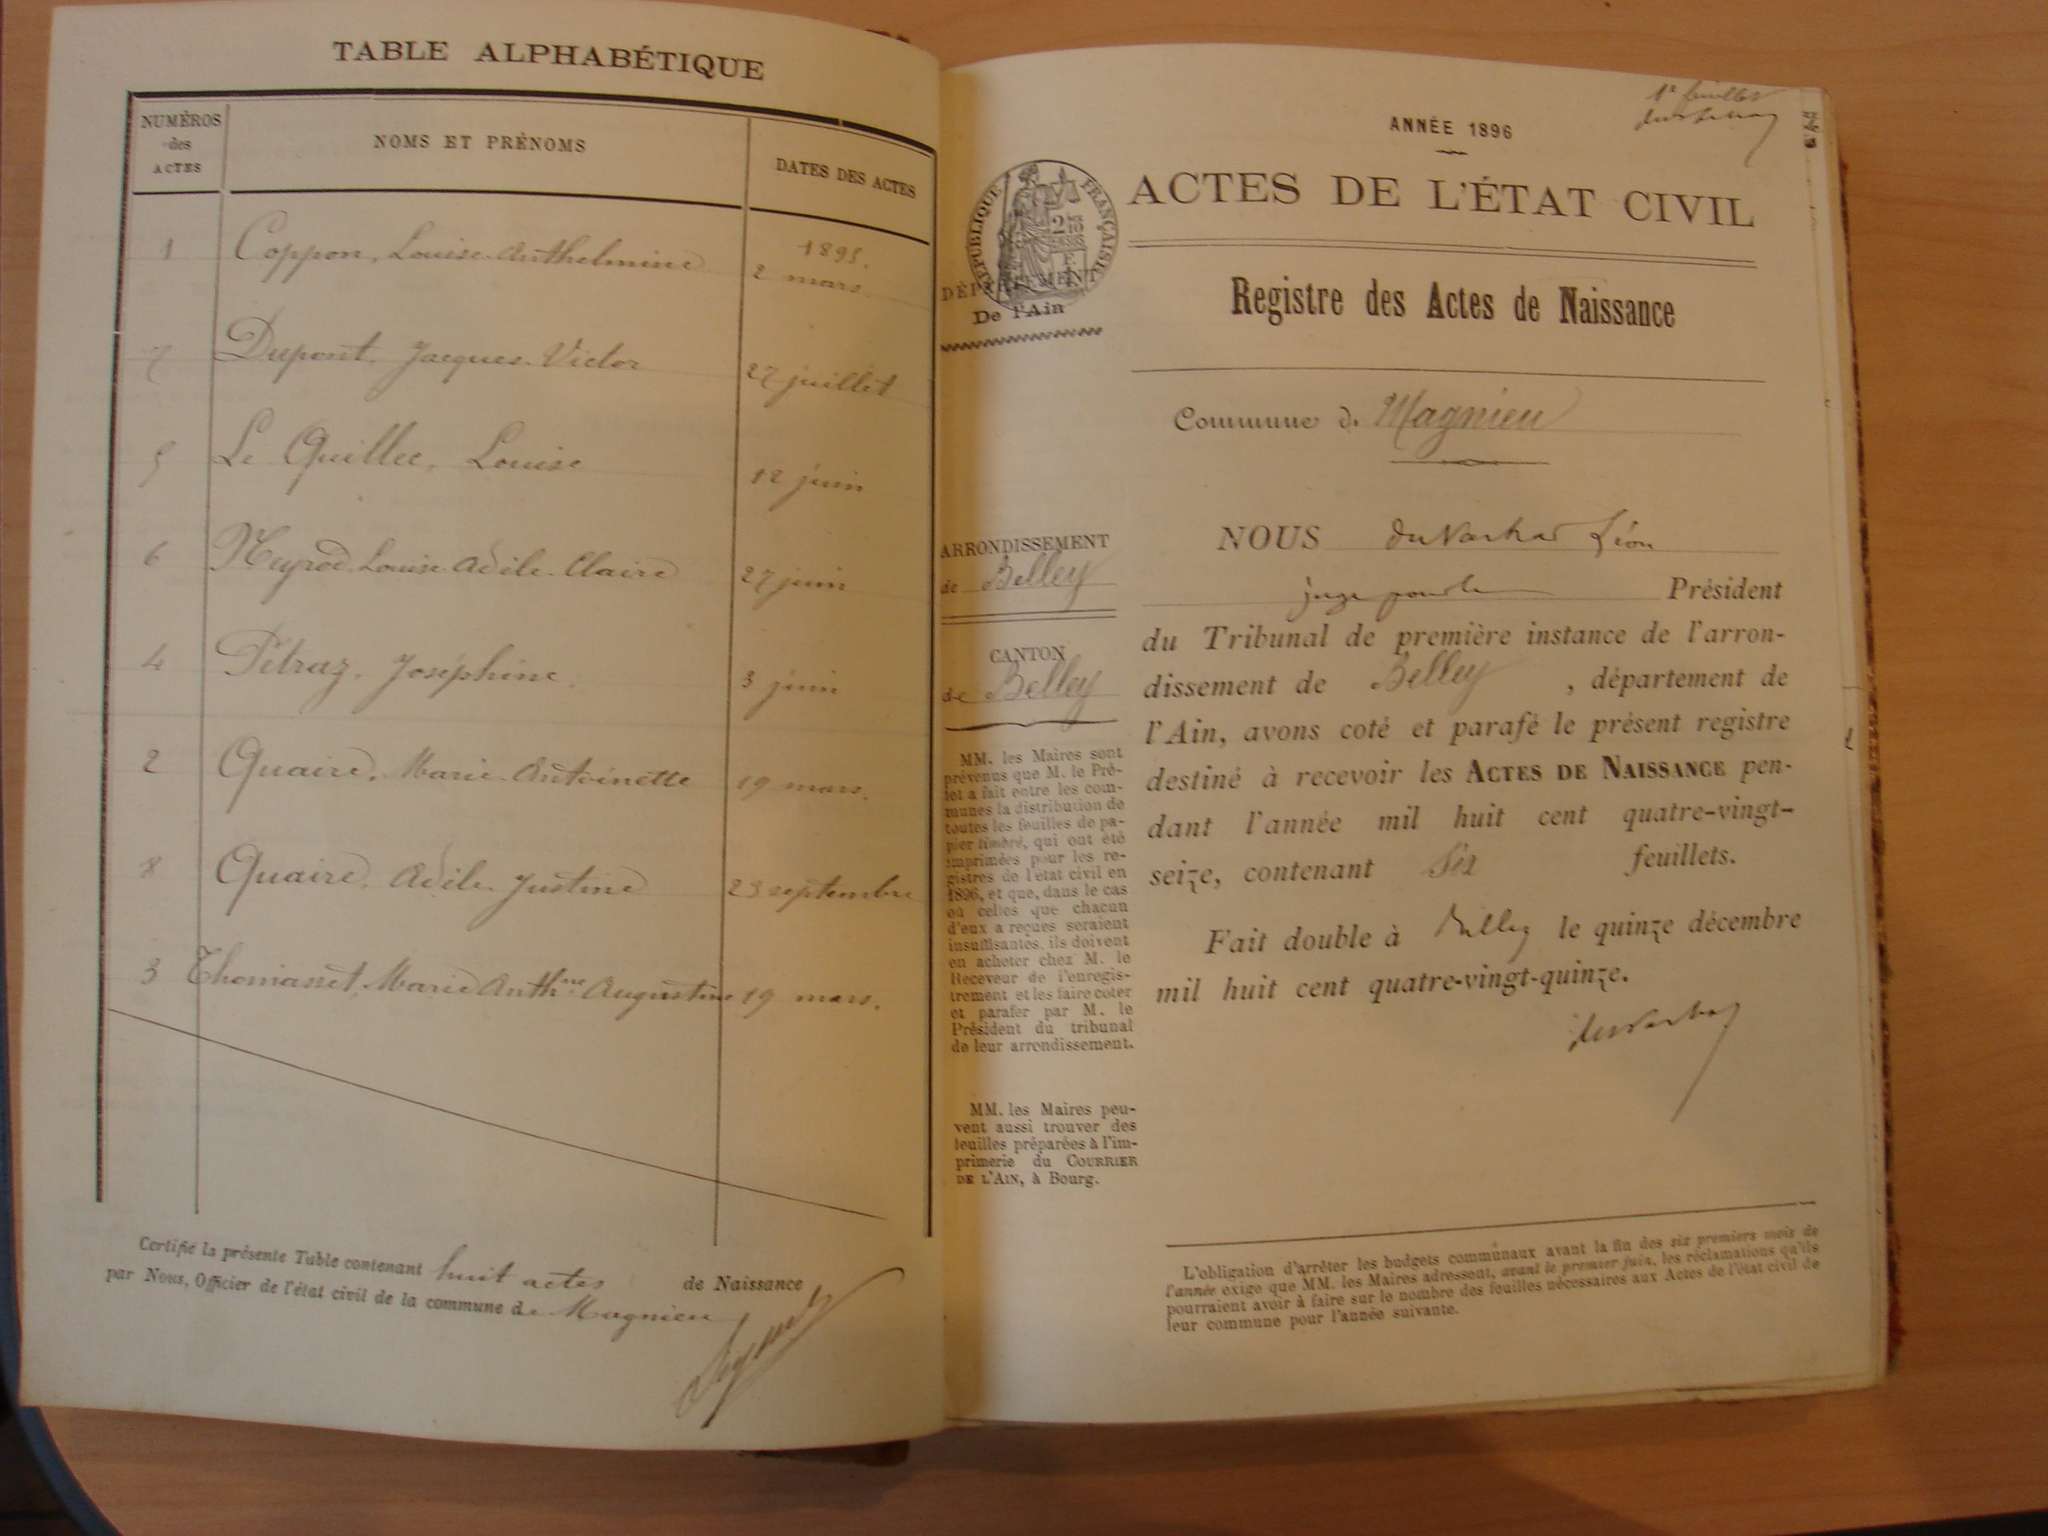 TABLE ALPHABÉTIQUE
NUMÉROS
des
ACTES
NOMS ET PRÉNOMS
DATES DES ACTES
1895.
1 Coppon, Louise Anthelmine 2 mars.
7 Dupont, Jacques Victor 27 juillet
5 Le Quillec, Louise 12 juin
6 Louise Adèle Claire 27 juin
4 Pétraz, Joséphine 3 juin
2 Quaire, Marie Antoinette 19 mars.
8 Quaire, Adèle Justine 23 septembre
3 Thomasset, Marie Anthne Augustine 19 mars.
Certifié la présente Table contenant huit actes de Naissance
par Nous, Officier de l'état civil de la commune de Magnieu
1er feuillet
ANNÉE 1896
ACTES DE L'ÉTAT CIVIL
RÉPUBLIQUE FRANÇAISE
DÉPARTEMENT
De l'Ain
Registre des Actes de Naissance
Commune de Magnieu
ARRONDISSEMENT
de Belley
CANTON
de Belley
MM. les Maires sont
prévenus que M. le Pré-
fet a fait entre les com-
munes la distribution de
toutes les feuilles de pa-
pier timbré, qui ont été
imprimées pour les re-
gistres de l'état civil en
1896, et que, dans le cas
où celles que chacun
d'eux a reçues seraient
insuffisantes, ils doivent
en acheter chez M. le
Receveur de l'enregis-
trement et les faire coter
et parafer par M. le
Président du tribunal
de leur arrondissement.
MM. les Maires peu-
vent aussi trouver des
feuilles préparées à l'im-
primerie du COURRIER
DE L'AIN, à Bourg.
NOUS Léon
juge pour le Président
du Tribunal de première instance de l'arron-
dissement de Belley, département de
l'Ain, avons coté et parafé le présent registre
destiné à recevoir les ACTES DE NAISSANCE pen-
dant l'année mil huit cent quatre-vingt-
seize, contenant six feuillets.
Fait double à Belley le quinze décembre
mil huit cent quatre-vingt-quinze.
L'obligation d'arrêter les budgets communaux avant la fin des six premiers mois de
l'année exige que MM. les Maires adressent, avant le premier juin, les réclamations qu'ils
pourraient avoir à faire sur le nombre des feuilles nécessaires aux Actes de l'état civil de
leur commune pour l'année suivante.